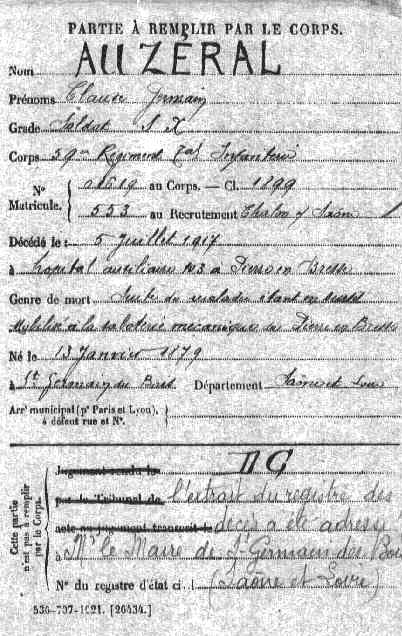 PARTIE À REMPLIR PAR LE CORPS.
Nom AUZÉRAL
Prénoms Claude Germain
Grade Soldat
Corps 59e Régiment d'Infanterie
N° Matricule. 01619 au Corps. — Cl. 1899
553 au Recrutement Chalon s/ Saône
Décédé le : 5 Juillet 1917
à hopital auxiliaire 103 a Pierre en Bresse
Genre de mort Suite de maladie étant en sursis
à la saboterie mécanique de Pierre en Bresse
Né le 13 Janvier 1879
à St Germain du Bois Département Saône et Loire
Arr^t municipal (p^r Paris et Lyon), à défaut rue et N°.
DG
Cette partie n'est pas à remplir par le Corps.
Jugement rendu le
par le Tribunal de l'extrait du registre des
acte ou jugement transcrit le décès a été adressé
à Mr le Maire de St Germain des Bois
N° du registre d'état ci (Saône et Loire)
536-707-1921. [26434.]